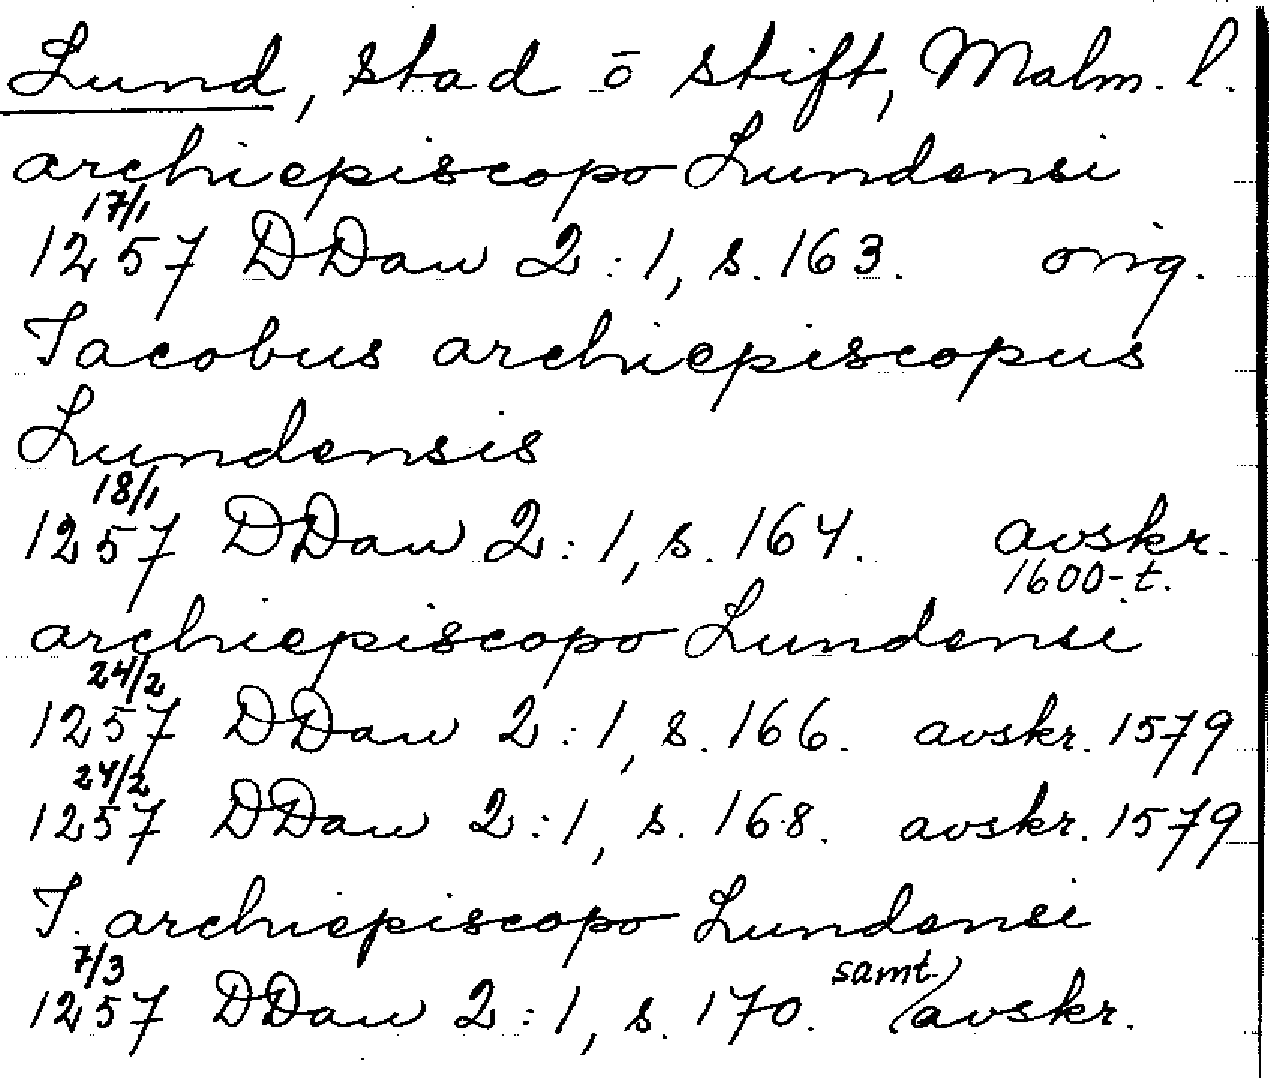 Lund, stad ō stift, Malm. l.
archiepiscopo Lundensi
17/1
1257 DDan 2:1, s. 163. orig.
Iacobus archiepiscopus
Lundensis
18/1
1257 DDan 2:1, s. 164. avskr.
1600-t.
archiepiscopo Lundensi
24/2
1257 DDan 2:1, s. 166. avskr. 1579
24/2
1257 DDan 2:1, s. 168. avskr. 1579
I. archiepiscopo Lundensi
7/3 samt.
1257 DDan 2:1, s. 170. avskr.